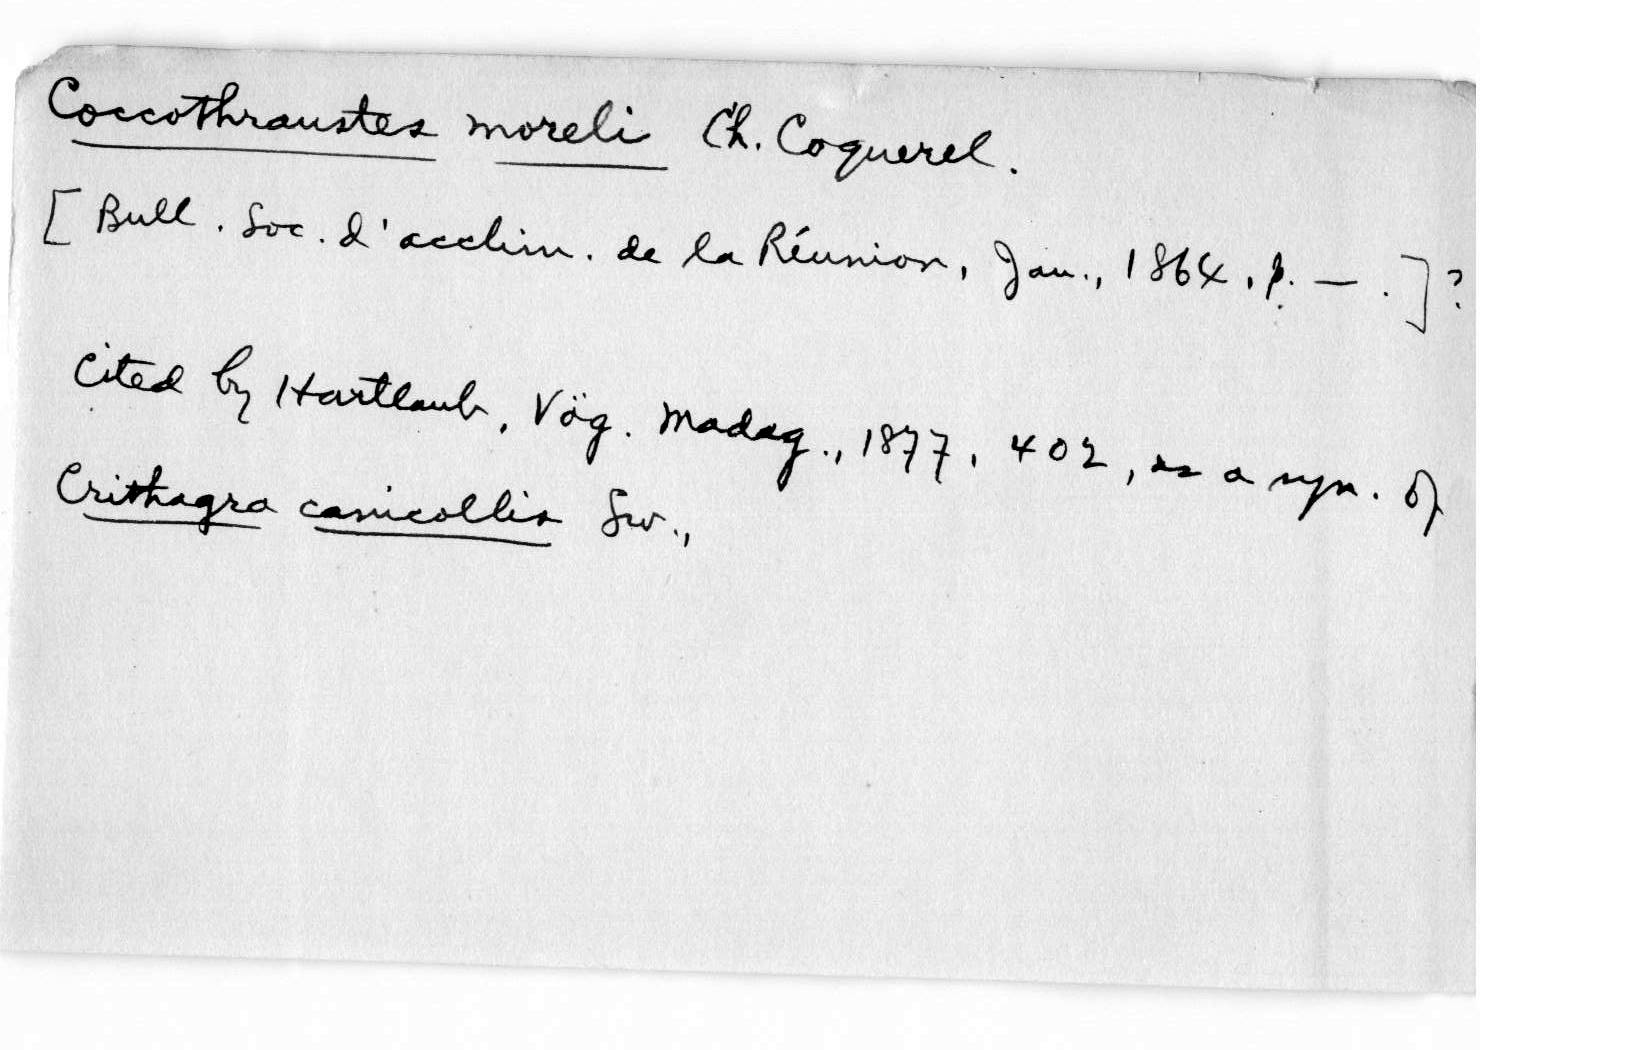 Coccothraustes moreli Ch. Coquerel.
[Bull. Soc. d'acclim. de la Réunion, Jan., 1864, p. — .]?
Cited by Hartlaub, Vög. Madag., 1877, 402, as a syn. of
Crithagra canicollis Sw.,